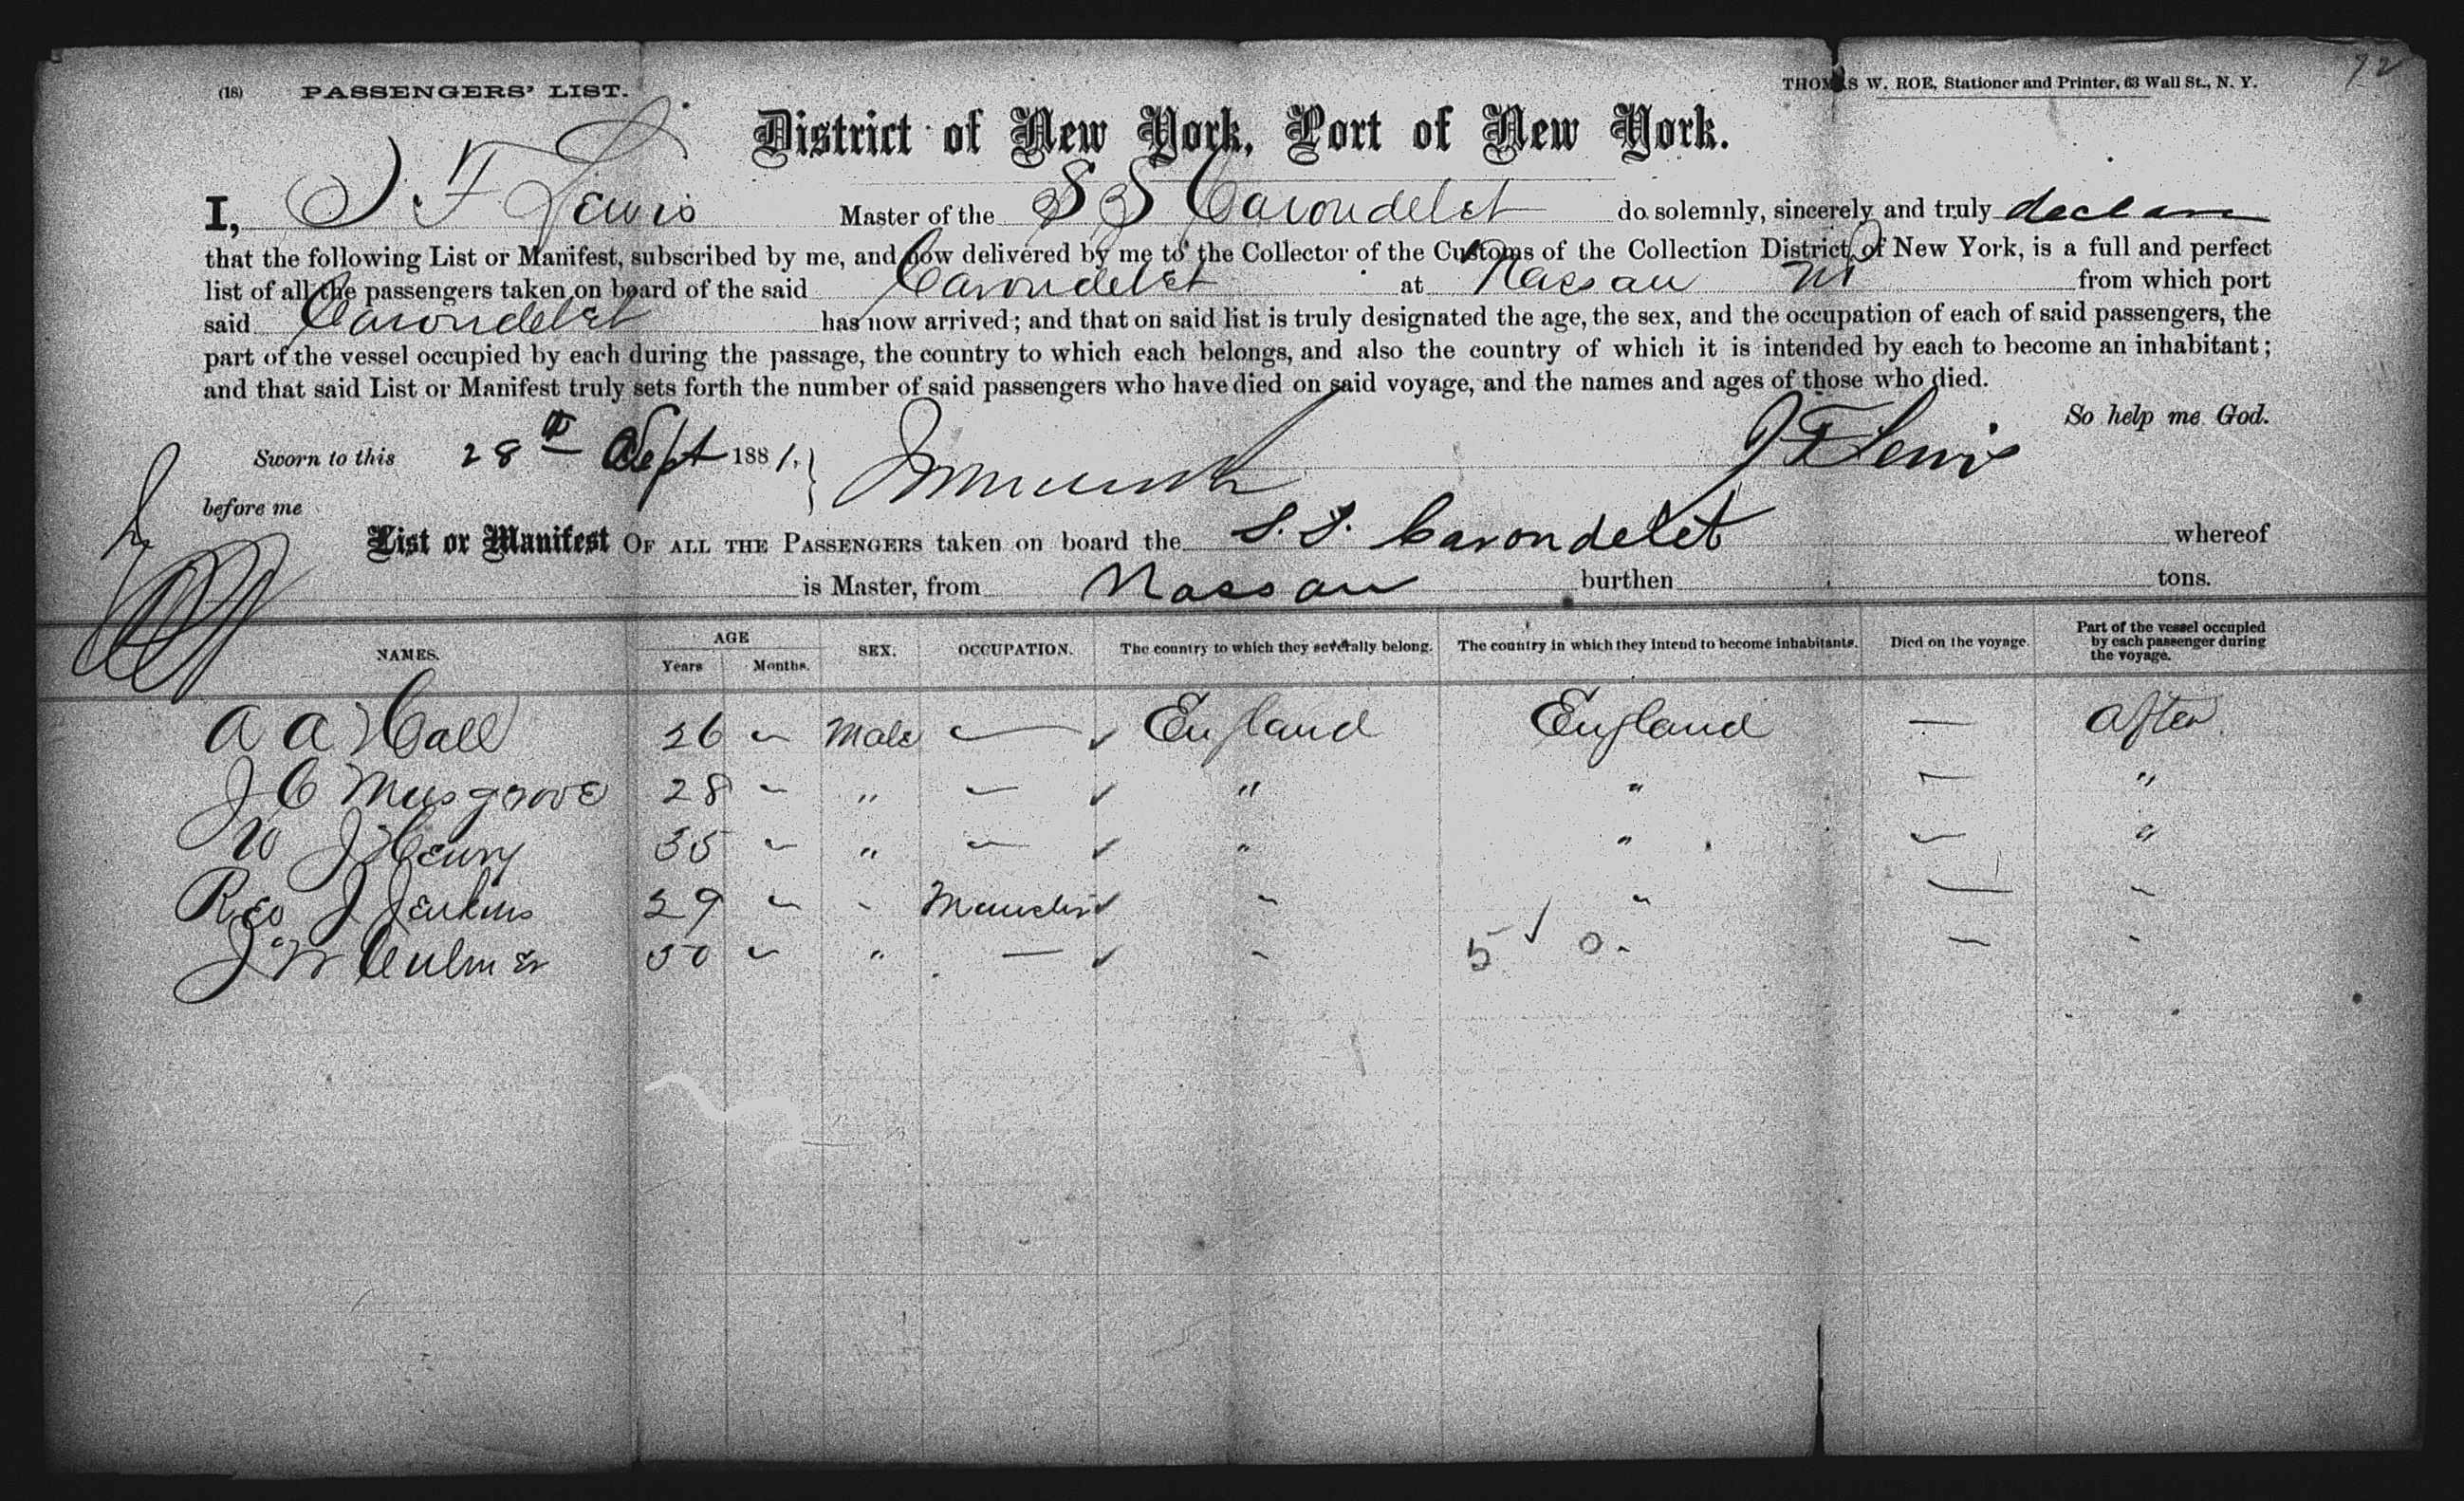 (18) PASSENGERS' LIST. THOMAS W. ROE, Stationer and Printer, 63 Wall St., N. Y. 92
District of New York, Port of New York.
I, J F Lewis Master of the S S Carondelet do solemnly, sincerely and truly declare
that the following List or Manifest, subscribed by me, and now delivered by me to the Collector of the Customs of the Collection District of New York, is a full and perfect
list of all the passengers taken on board of the said Carondelet at Nassau NP from which port
said Carondelet has now arrived; and that on said list is truly designated the age, the sex, and the occupation of each of said passengers, the
part of the vessel occupied by each during the passage, the country to which each belongs, and also the country of which it is intended by each to become an inhabitant;
and that said List or Manifest truly sets forth the number of said passengers who have died on said voyage, and the names and ages of those who died.
So help me God.
Sworn to this 28th Sept 1881. J F Lewis
before me
List or Manifest OF ALL THE PASSENGERS taken on board the S. S. Carondelet whereof
is Master, from Nassau burthen tons.
NAMES. AGE Years Months. SEX. OCCUPATION. The country to which they severally belong. The country in which they intend to become inhabitants. Died on the voyage. Part of the vessel occupied by each passenger during the voyage.
A A Hall 26 Male — ✓ England England — After
J C Musgrove 28 " " — ✓ " " — "
W J Henry 35 " " — ✓ " " — "
Rev J Jenkins 29 " " ✓ " " — "
J W Culmer 50 " " — ✓ " 5 ✓ 0 — "